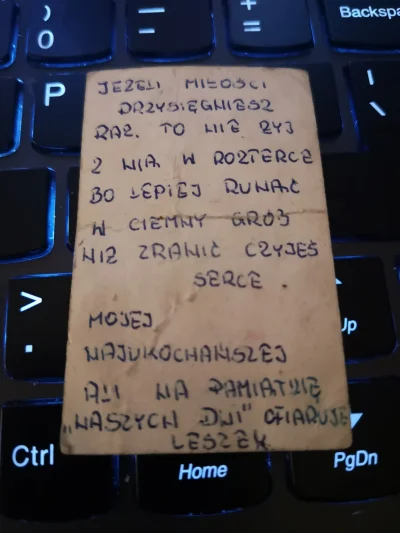 )
0
-
+
=
Backspa
P
\
>
.
Up
Ctrl
Home
PgDn
JEŻELI MIŁOŚCI
PRZYSIĘGNIESZ
RAZ. TO NIE ŻYJ
Z NIĄ W ROZTERCE
BO LEPIEJ RUNĄĆ
W CIEMNY GRÓB
NIŻ ZRANIĆ CZYJEŚ
SERCE.
MOJEJ
NAJUKOCHAŃSZEJ
ALI NA PAMIĄTKĘ
„NASZYCH DNI" OFIARUJE
LESZEK